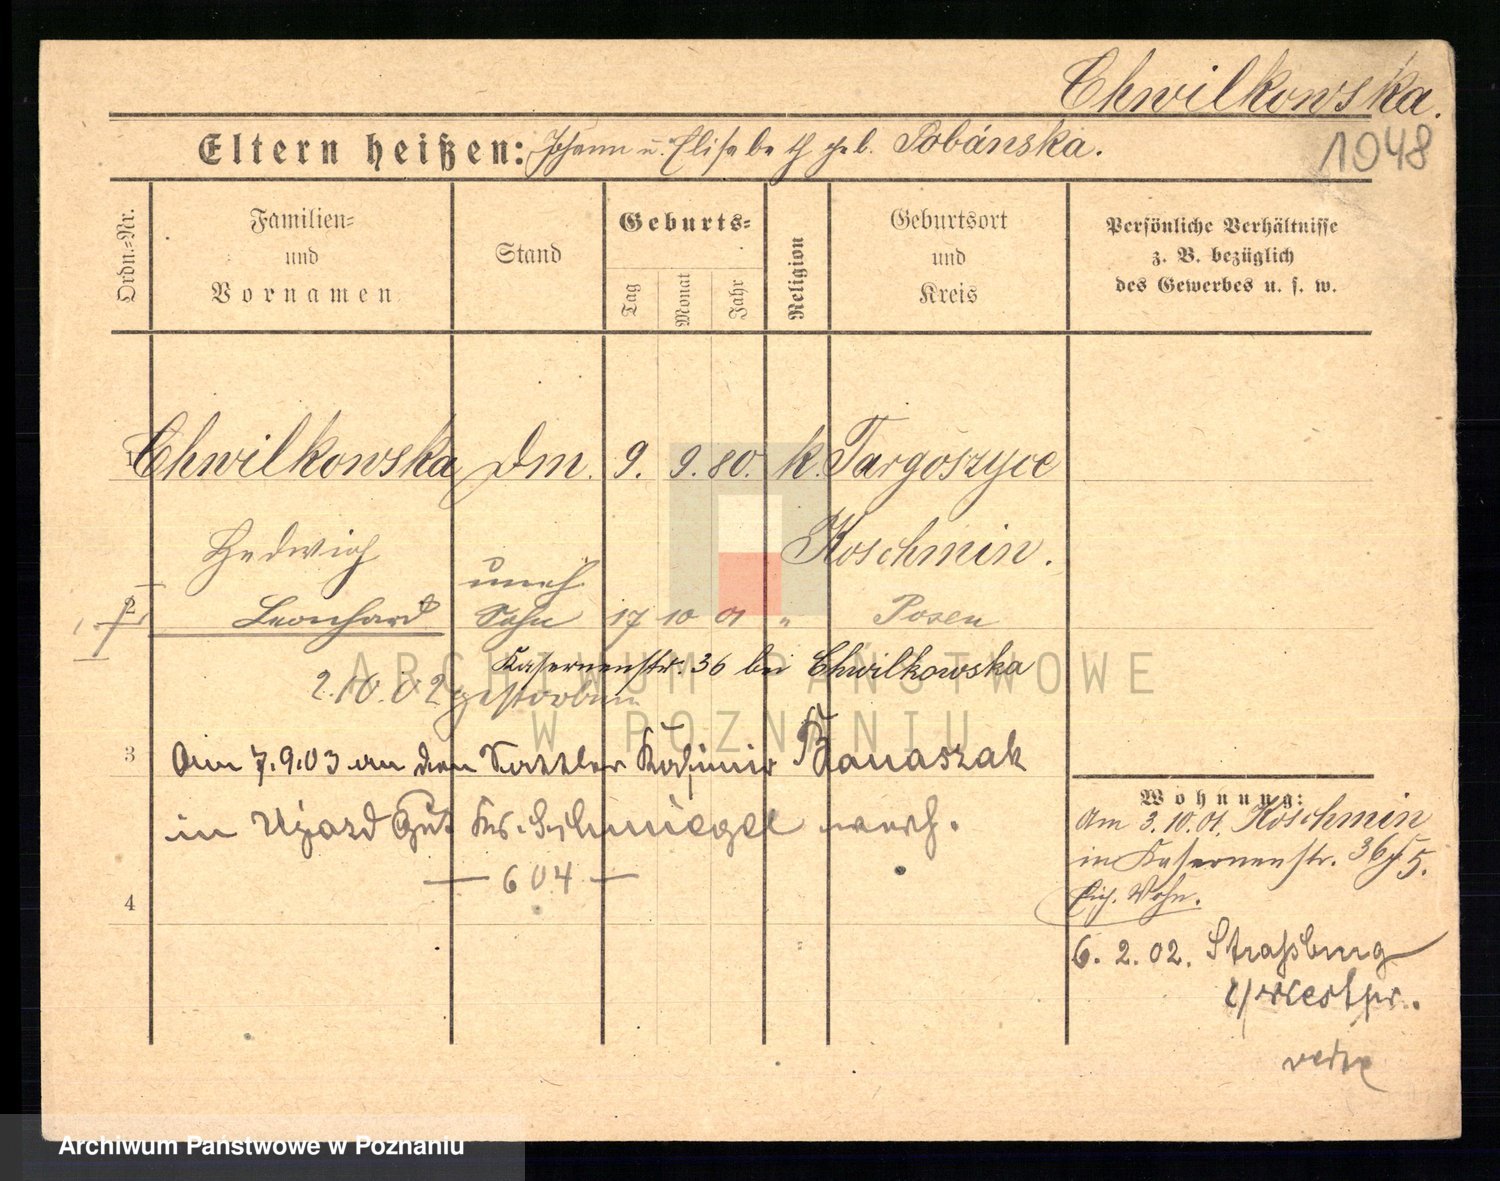 Chwilkowska.
1048
Eltern heißen: Johann u. Elisabeth geb. Pobánska.
Ordn.=Nr.
Familien=
und
Vornamen
Stand
Geburts=
Tag
Monat
Jahr
Religion
Geburtsort
und
Kreis
Persönliche Verhältnisse
z. B. bezüglich
des Gewerbes u. s. w.
1 Chwilkowska Dm. 9. 9. 80. k. Targoszyce
Hedwig Koschmin.
uneh
2 Leonhard Sohn 17 10 01 " Posen
Kasernenstr. 36 bei Chwilkowska
2.10.02 gestorben
3 Am 7.9.03 an den Sattler Kasimir Banaszak
in Ujazd Gut Kr. Schmiegel verh.
— 604 —
4
Wohnung:
Am 3.10.01. Koschmin
in Kasernenstr. 36 5.
Wohn.
6. 2. 02. Straßburg
i/Westpr.
ARCHIWUM PAŃSTWOWE
W POZNANIU
Archiwum Państwowe w Poznaniu